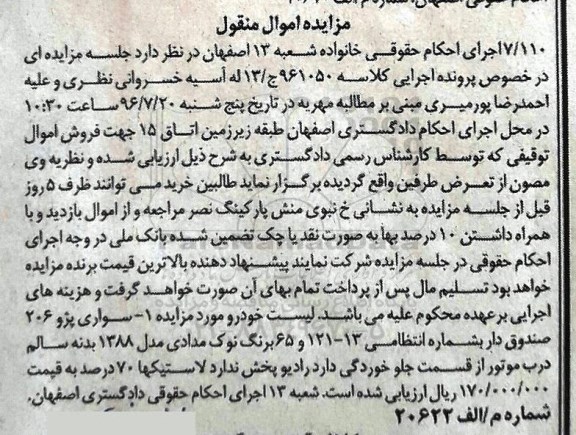 مزایده اموال منقول
۷/۱۱۰ اجرای احکام حقوقی خانواده شعبه ۱۳ اصفهان در نظر دارد جلسه مزایده ای
در خصوص پرونده اجرایی کلاسه ۹۶۱۰۵۰ج/۱۳ له آسیه خسروانی نظری و علیه
احمدرضا پورمیری مبنی بر مطالبه مهریه در تاریخ پنج شنبه ۹۶/۷/۲۰ ساعت ۱۰:۳۰
در محل اجرای احکام دادگستری اصفهان طبقه زیرزمین اتاق ۱۵ جهت فروش اموال
توقیفی که توسط کارشناس رسمی دادگستری به شرح ذیل ارزیابی شده و نظریه وی
مصون از تعرض طرفین واقع گردیده برگزار نماید طالبین خرید می توانند ظرف ۵ روز
قبل از جلسه مزایده به نشانی خ نبوی منش پارکینگ نصر مراجعه و از اموال بازدید و با
همراه داشتن ۱۰ درصد بها به صورت نقد یا چک تضمین شده بانک ملی در وجه اجرای
احکام حقوقی در جلسه مزایده شرکت نمایند پیشنهاد دهنده بالاترین قیمت برنده مزایده
خواهد بود تسلیم مال پس از پرداخت تمام بهای آن صورت خواهد گرفت و هزینه های
اجرایی بر عهده محکوم علیه می باشد. لیست خودرو مورد مزایده ۱- سواری پژو ۲۰۶
صندوق دار بشماره انتظامی ۱۳-۱۲۱ و ۶۵ برنگ نوک مدادی مدل ۱۳۸۸ بدنه سالم
درب موتور از قسمت جلو خوردگی دارد رادیو پخش ندارد لاستیکها ۷۰ درصد به قیمت
۱۷۰/۰۰۰/۰۰۰ ریال ارزیابی شده است. شعبه ۱۳ اجرای احکام حقوقی دادگستری اصفهان.
شماره م/الف ۲۰۶۲۲